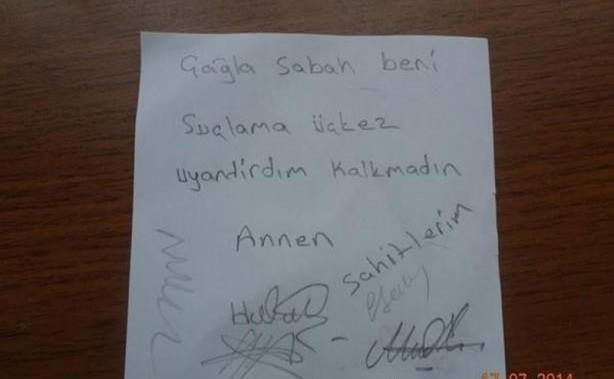 Çağla sabah beni
Suçlama üçkez
uyandirdım kalkmadın
Annen
şahitlerim
17.07.2014